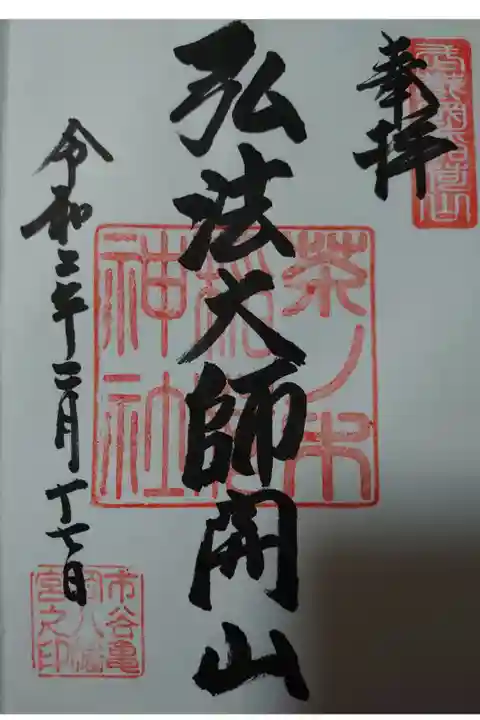 奉拝
茶ノ木
稲荷
神社
弘法大師開山
令和二年二月十七日
市谷亀
岡八幡
宮之印